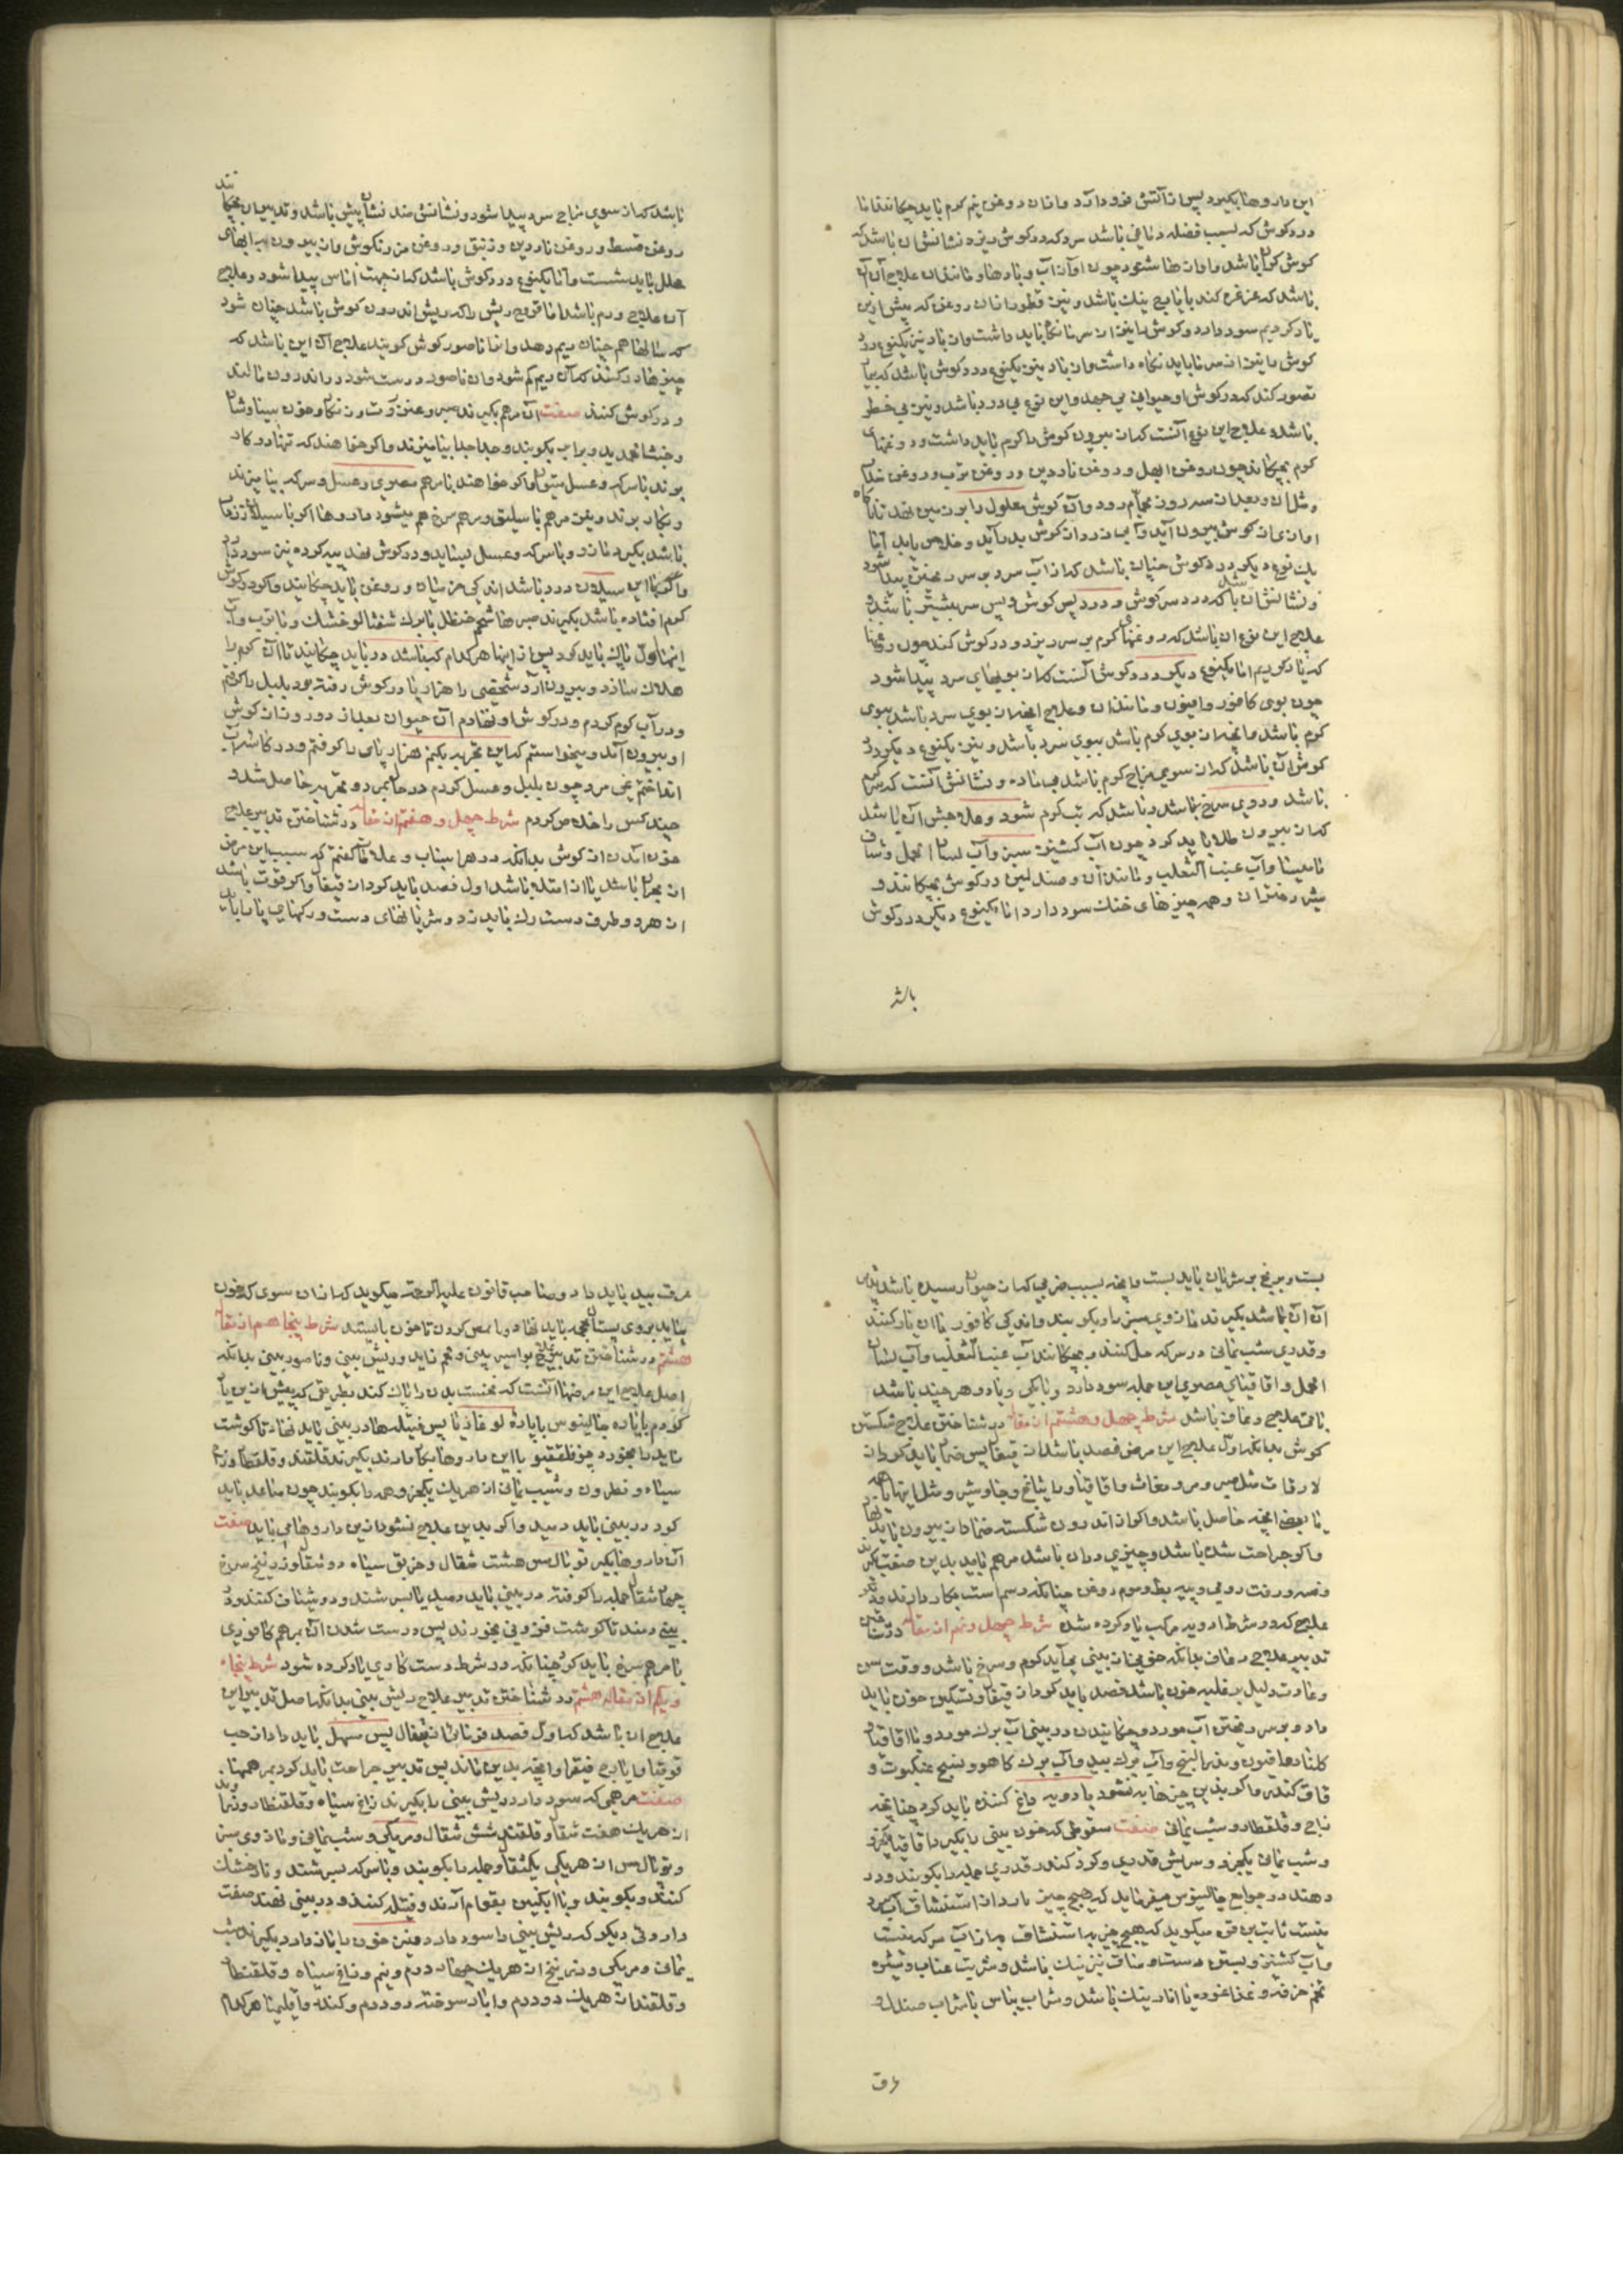 این داروها بگیرد پس از آتش فرود آرد و از آن روغن نیم کرم باید چکانند اما
درد کوش که بسبب فضله دماغی باشد سرد که در کوش ریزد نشانش آن باشد که
کوش کران باشد و آوازها شنود چون آواز آب و بادها و مانند آن علاج آن آن
باشد که غرغره کند بایارج نیک باشد و نیز قطور از آن روغن که پیش ازین
یاد کردیم سود دارد و کوش را نیز از سرما نگاه باید داشت و از باد نیز یکنوع درد
کوش را نیز از سرما باید نگاه داشت و از باد نیز یکنوع درد کوش باشد که بیمار
تصور کند که در کوش او حیوانی می جهد و این نوع بی درد باشد و نیز بی خطر
باشد و علاج این نوع آنست که از بیرون کوش را کرم باید داشت و روغنهای
کرم بچکاند چون روغن ابهل و روغن ناردین و روغن ترب و روغن سداب
و مثل آن و بعد از سه روز بحمام رود و آن کوش معلول را بر زمین نهد تا
او از میان کوش بیرون آید و آبی زرد از کوش بدر آید و خلاص یابد اما
یک نوع دیگر درد کوش چنان باشد که از آب سرد بر سر ریختن پیدا شود
و نشانش آن باشد که درد سر کوش و درد پس کوش و پس سر بیشتر باشد و
علاج این نوع آن باشد که روغنهای کرم بر سر ریزد و در کوش کند چون روغنها
که یاد کردیم اما یکنوع دیگر درد کوش آنست که از بویهای سرد پیدا شود
چون بوی کافور و افیون و مانند آن و علاج انچه از بوی سرد باشد ببوی
کرم باشد و انچه از بوی کرم باشد ببوی سرد باشد و نیز یکنوع دیگر درد
کوش آن باشد که از سوی مزاج کرم باشد بی ماده و نشانش آنست که سر کرم
باشد و روی سرخ باشد و باشد که تب کرم شود و علاجش آن باشد
که از بیرون طلا باید کرد چون آب کشنیز سبز و آب لسان الحمل و شیاف
مامیثا و آب عنب الثعلب و مانند آن و صندلین در کوش بچکانند و
شیر دختران و همه چیزهای خنک سود دارد اما یکنوع دیگر درد کوش
باشد
باشد که از سوی مزاج سرد پیدا شود و نشانش ضد نشان پیش باشد و تدبیر آن بچکانند
روغن قسط و روغن ناردین و زنبق و روغن مرزنکوش و از بیرون به آبهای
محلل باید شست و اما یکنوع درد کوش باشد که از جهت آماس پیدا شود و علاج
آن علاج ورم باشد اما قروح ریش را که ریش اندرون کوش باشد چنان شود
که سالها همچنان ریم دهد و اما ناصور کوش کویند علاج آن این باشد که
چیزها در کنند که آن ریم کم شود و آن ناصور درست شود در اندرون مالند
و در کوش کنند صفت آن مرهم بکیرند صبر و عنزروت و زنکار و خون سیاوشان
و خبث الحدید و برابر بکوبند و جدا جدا بیامیزند و اگر خواهند که تنها در کار
برند با سرکه و عسل بتوان و اگر خواهند با مرهم مصری و عسل و سرکه بیامیزند
و بکار برند و نیز مرهم باسلیق و مرهم سرخ هم میشود داروها اگر با سیلان زنکار
باشد بکیرد مازو و با سرکه و عسل بساید و در کوش نهد پیه کرده نیز سود دارد
و اگر با این سیلان درد باشد اندکی مرمیان و روغن باید چکانید و اگر در کوش
کرم افتاده باشد بکیرند صبر با شحم حنظل با برک شفتالو خشک و با ترب و آب
اینها اول پاک باید کرد پس از اینها هر کدام که باشد در باید چکانید تا آن کرم را
هلاک سازد و بیرون آرد شخصی را هزار پا در کوش رفته بود پلپل را کرفتم
و در آب کرم کردم و در کوش او نهادم آن حیوان بعد از دو روز از کوش
او بیرون آمد و میخواستم که این تجربه بکنم هزار پای را کرفتم و در کاس آب
انداختم نمی مرد چون پلپل و عسل کردم در حال بمرد و تجربه حاصل شد و
چند کس را خلاص کردم شرط چهل و هفتم از مقاله در شناختن تدبیر علاج
خون آمدن از کوش بدانکه در هر اسباب و علامات کفتم که سبب این مرض
از بحران باشد یا از امتلا باشد اول فصد باید کرد از قیفال و اگر قوت باشد
از هر دو طرف دست رک باید زد و شریانهای دست و رکهای پا را باید
بست و برنج بر شریان باید بست و انچه بسبب ضربی که از حیوان رسیده باشد تدبیر
آن آن باشد بکیرند مازوی سبز را و بکوبند و اندکی کافور با آن یار کنند
و قدری شب یمانی در سرکه حل کنند و بچکانند آب عنب الثعلب و آب لسان
الحمل و اقاقیای مصری این جمله سود دارد و نایکی و یا دو هر چند باشد
نافع علاج رعاف باشد شرط چهل و هشتم از مقاله در شناختن علاج شکستن
کوش بدانکه اول علاج این مرض فصد باشد از قیفال پس ضماد باید کرد از
لازقات مثل صبر و مر و مغاث و اقاقیا و راتیانج و جاوشیر و مثل اینها همه
یا بعض انچه حاصل باشد و اگر از اندرون شکسته ضماد از بیرون باید نهاد
و اگر جراحت شده باشد و چیزی در آن باشد مرهم باید بدین صفت بکیرند
وسمه و زفت رومی و پیه بط و موم روغن چنانکه رسم است بکار دارند و تدبیر
علاج که در شرط ادویه مرکب یاد کرده شد شرط چهل و نهم از مقاله در شناختن
تدبیر علاج رعاف بدانکه خونی که از بینی می آید کرم و سرخ باشد و وقت سن
و عادت دلیل بر غلبه خون باشد فصد باید کرد از قیفال و تسکین خون باید
داد و بر سر ریختن آب مورد و چکانیدن در بینی آب برک مورد و با اقاقیا و
کلنار و افیون و بذرالبنج و آب برک بید و آب برک کاهو و نسج عنکبوت و
قاق کندر و اگر بدین چیزها به نشود با دویه داغ کننده باید کرد چنانچه
زاج و قلقطار و شب یمانی صفت سعوطی که خون بینی را بکیرد اقاقیا یکجزو
و شب یمانی یکجزو و سریش قدری و کرد کندر قدری جمله را بکوبند و درد
دهند در جوامع جالینوس میفرماید که هیچ چیز به از استنشاق آب سرد
نیست ثابت بن قره میکوید که هیچ چیز به استنشاق به از آب سرکه نیست
و آب کشنیز و بستن دست و ساق نیز نیک باشد و شربت عناب و شیره
تخم خرفه و غذا غوره با انار نیک باشد و شراب ریباس با شراب صندل و
عرق
عرق بید باید داد و صاحب قانون علیه الرحمه میکوید که از آن سوی که خون
بیاید بر وی پستان محجمه باید نهاد و با مص کردن تا خون باایستد شرط پنجاهم از مقاله
هشتم در شناختن تدبیر علاج بواسیر بینی و لحم زاید و ریش بینی و ناصور بینی بدانکه
اصل علاج این مرضها آنست که نخست بدن را پاک کند بطریقی که پیش ازین یاد
کردم بایاره جالینوس بایاره لوغاذیا پس فتیلها در بینی باید نهاد تا کوشت
زاید را بخورد چو فلتفیو با این داروها بکار دارند بکیرند قلقند و قلقطار و زاج
سیاه و نطرون و شب یمانی از هر یک یکجزو همه را بکوبند چون ساعد باید
کرد در بینی باید دمید و اگر بدین علاج نشود ازین داروها می باید صفت
آن داروها بکیر توبال مس هشت مثقال و خربق سیاه دو مثقال و زرنیخ سرخ
چهار مثقال جمله را کوفته در بینی باید دمید یا بسرشند و دو شیاف کنند و در
بینی دمند تا کوشت فزونی بخورند پس درست شدن آن بمرهم کافوری
یا مرهم سرخ باید کرد چنانکه در شرط دست کاری یاد کرده شود شرط پنجاه
و یکم از مقاله هشتم در شناختن تدبیر علاج ریش بینی بدانکه اصل تدبیر این
علاج آن باشد که اول فصد فرمایی از قیفال پس مسهل باید داد از حب
قوقیا و ایارج فیقرا و انچه بدین ماند پس تدبیر جراحت باید کرد بمرهمها
صفت مرهمی که سود دارد ریش بینی را بکیرند زاغ سیاه و قلقطار و زراوند
از هر یک هفت مثقال و قلقند شش مثقال و مر مکی و شب یمانی و مازوی سبز
و توبال مس از هر یکی یکمثقال و جمله را بکوبند و با سرکه بسرشند و باز خشک
کنند و بکوبند و با انکبین بقوام آرند و فتیله کنند و در بینی نهند صفت
داروی دیکر که ریش بینی را سود دارد و نیز خون را باز دارد بکیرند شب
یمانی و مر مکی و زرنیخ از هر یک چهار درم و نیم و زاغ سیاه و قلقطار
و قلقند از هر یک دو درم و انار سوخته دو درم و کندر و اقلیمیا هر کدام